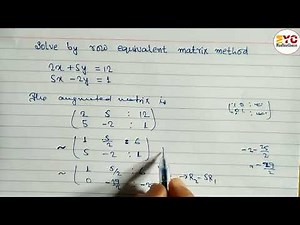 Solve by row equivalent matrix method
2x + 5y = 12
5x - 2y = 1
The augmented matrix is
( 2 5 : 12
5 -2 : 1 )
~ ( 1 5/2 : 6
5 -2 : 1 )
~ ( 1 5/2 :
0 -29/2 → R₂ - 5R₁
-2 - 25/2
= -29/2